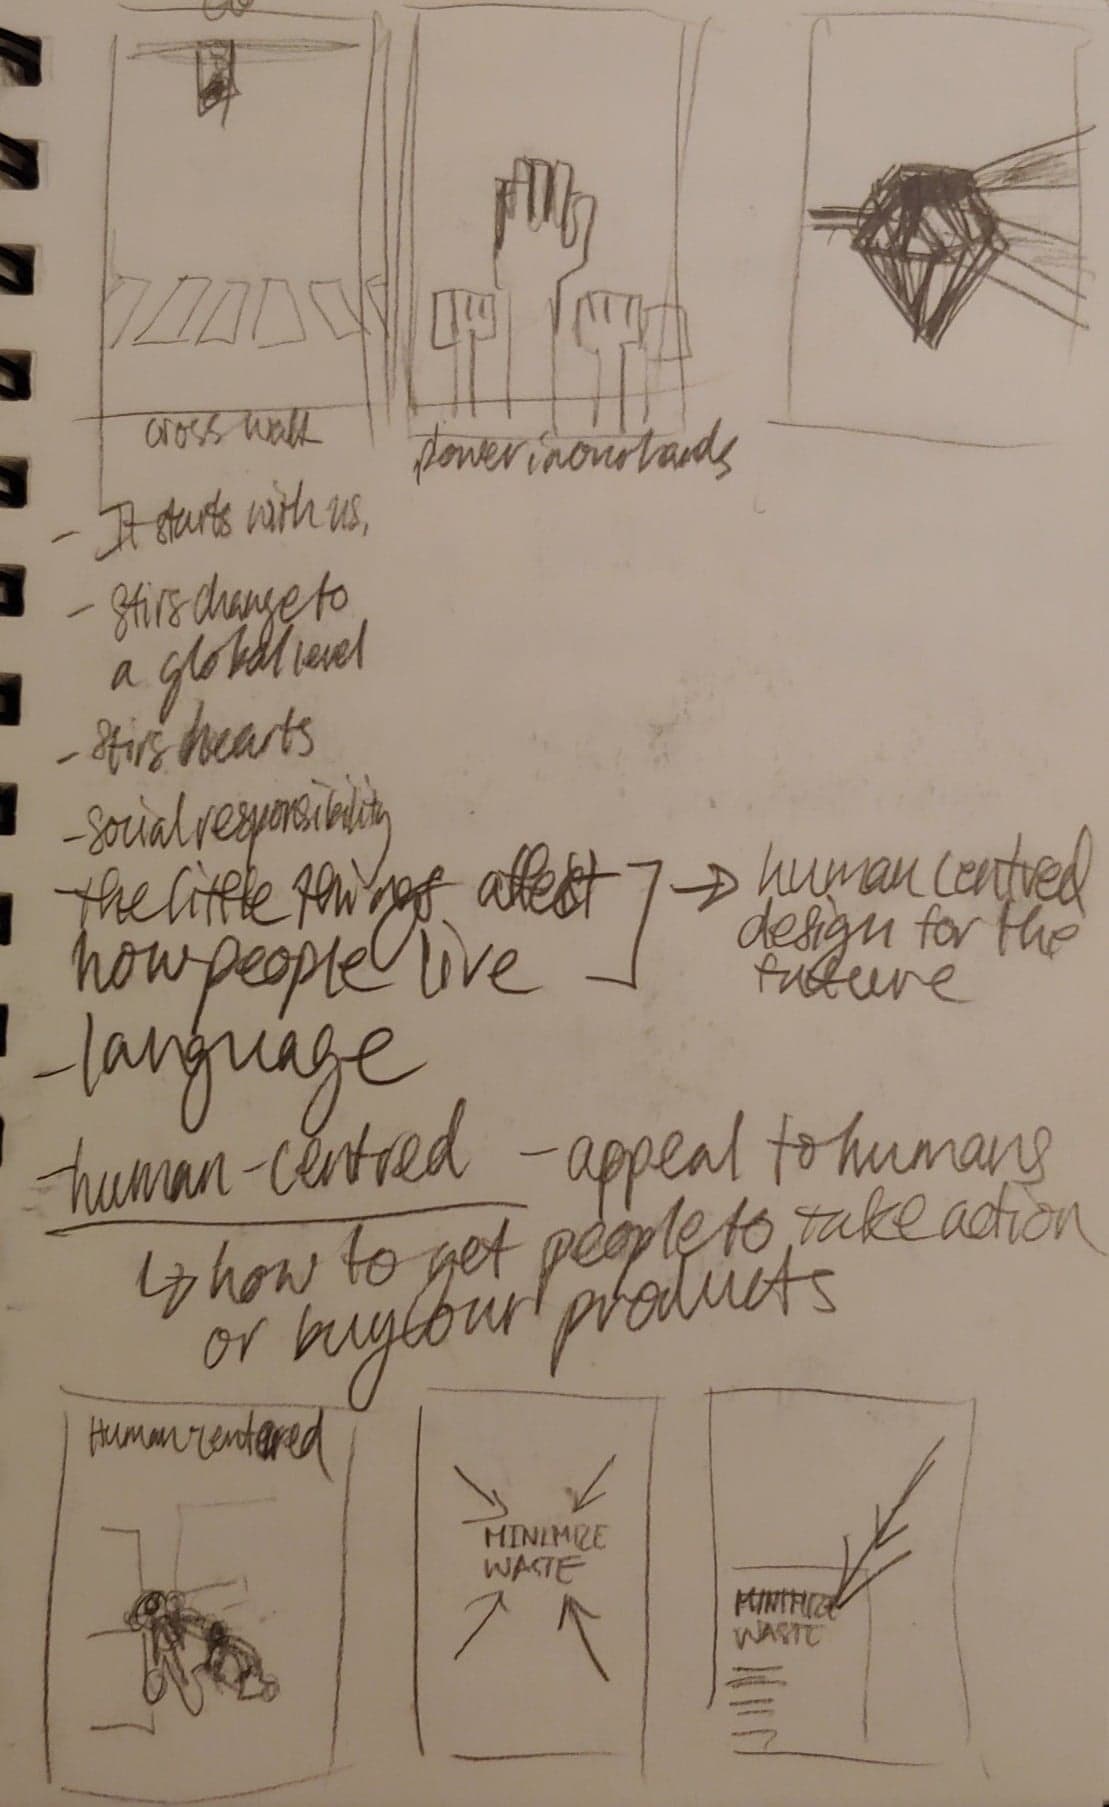 cross walk
power in our hands
- It starts with us,
- Stirs change to
a global level
- Stirs hearts
- social responsibility
- the little things affect
how people live
→ human centred
design for the
future
- language
- human-centred - appeal to humans
↳ how to get people to take action
or buy our products
Human centered
MINIMIZE
WASTE
MINIMIZE
WASTE